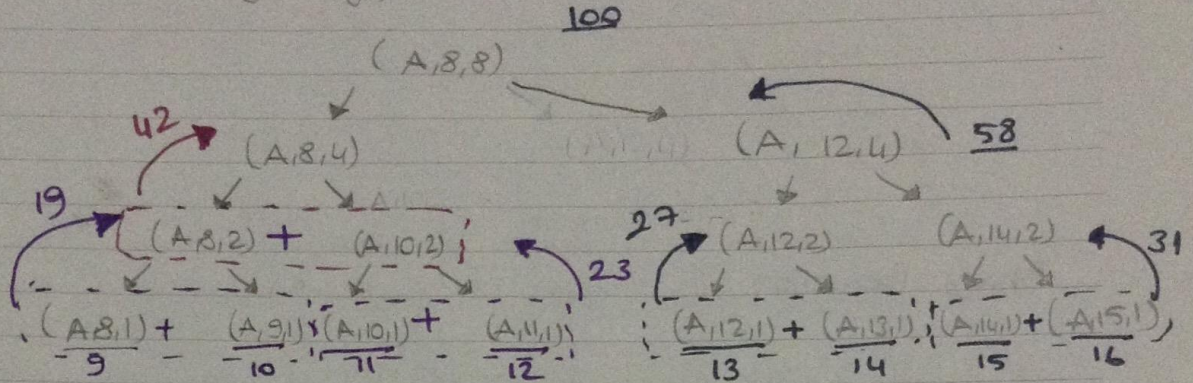 100
(A,8,8)
42 (A,8,4) (A, 12,4) 58
19 (A,8,2) + (A,10,2) 23 27 (A,12,2) (A,14,2) 31
(A8,1) + (A,9,1) (A,10,1) + (A,11,1) (A,12,1) + (A,13,1) (A,14,1) + (A,15,1)
9 10 11 12 13 14 15 16